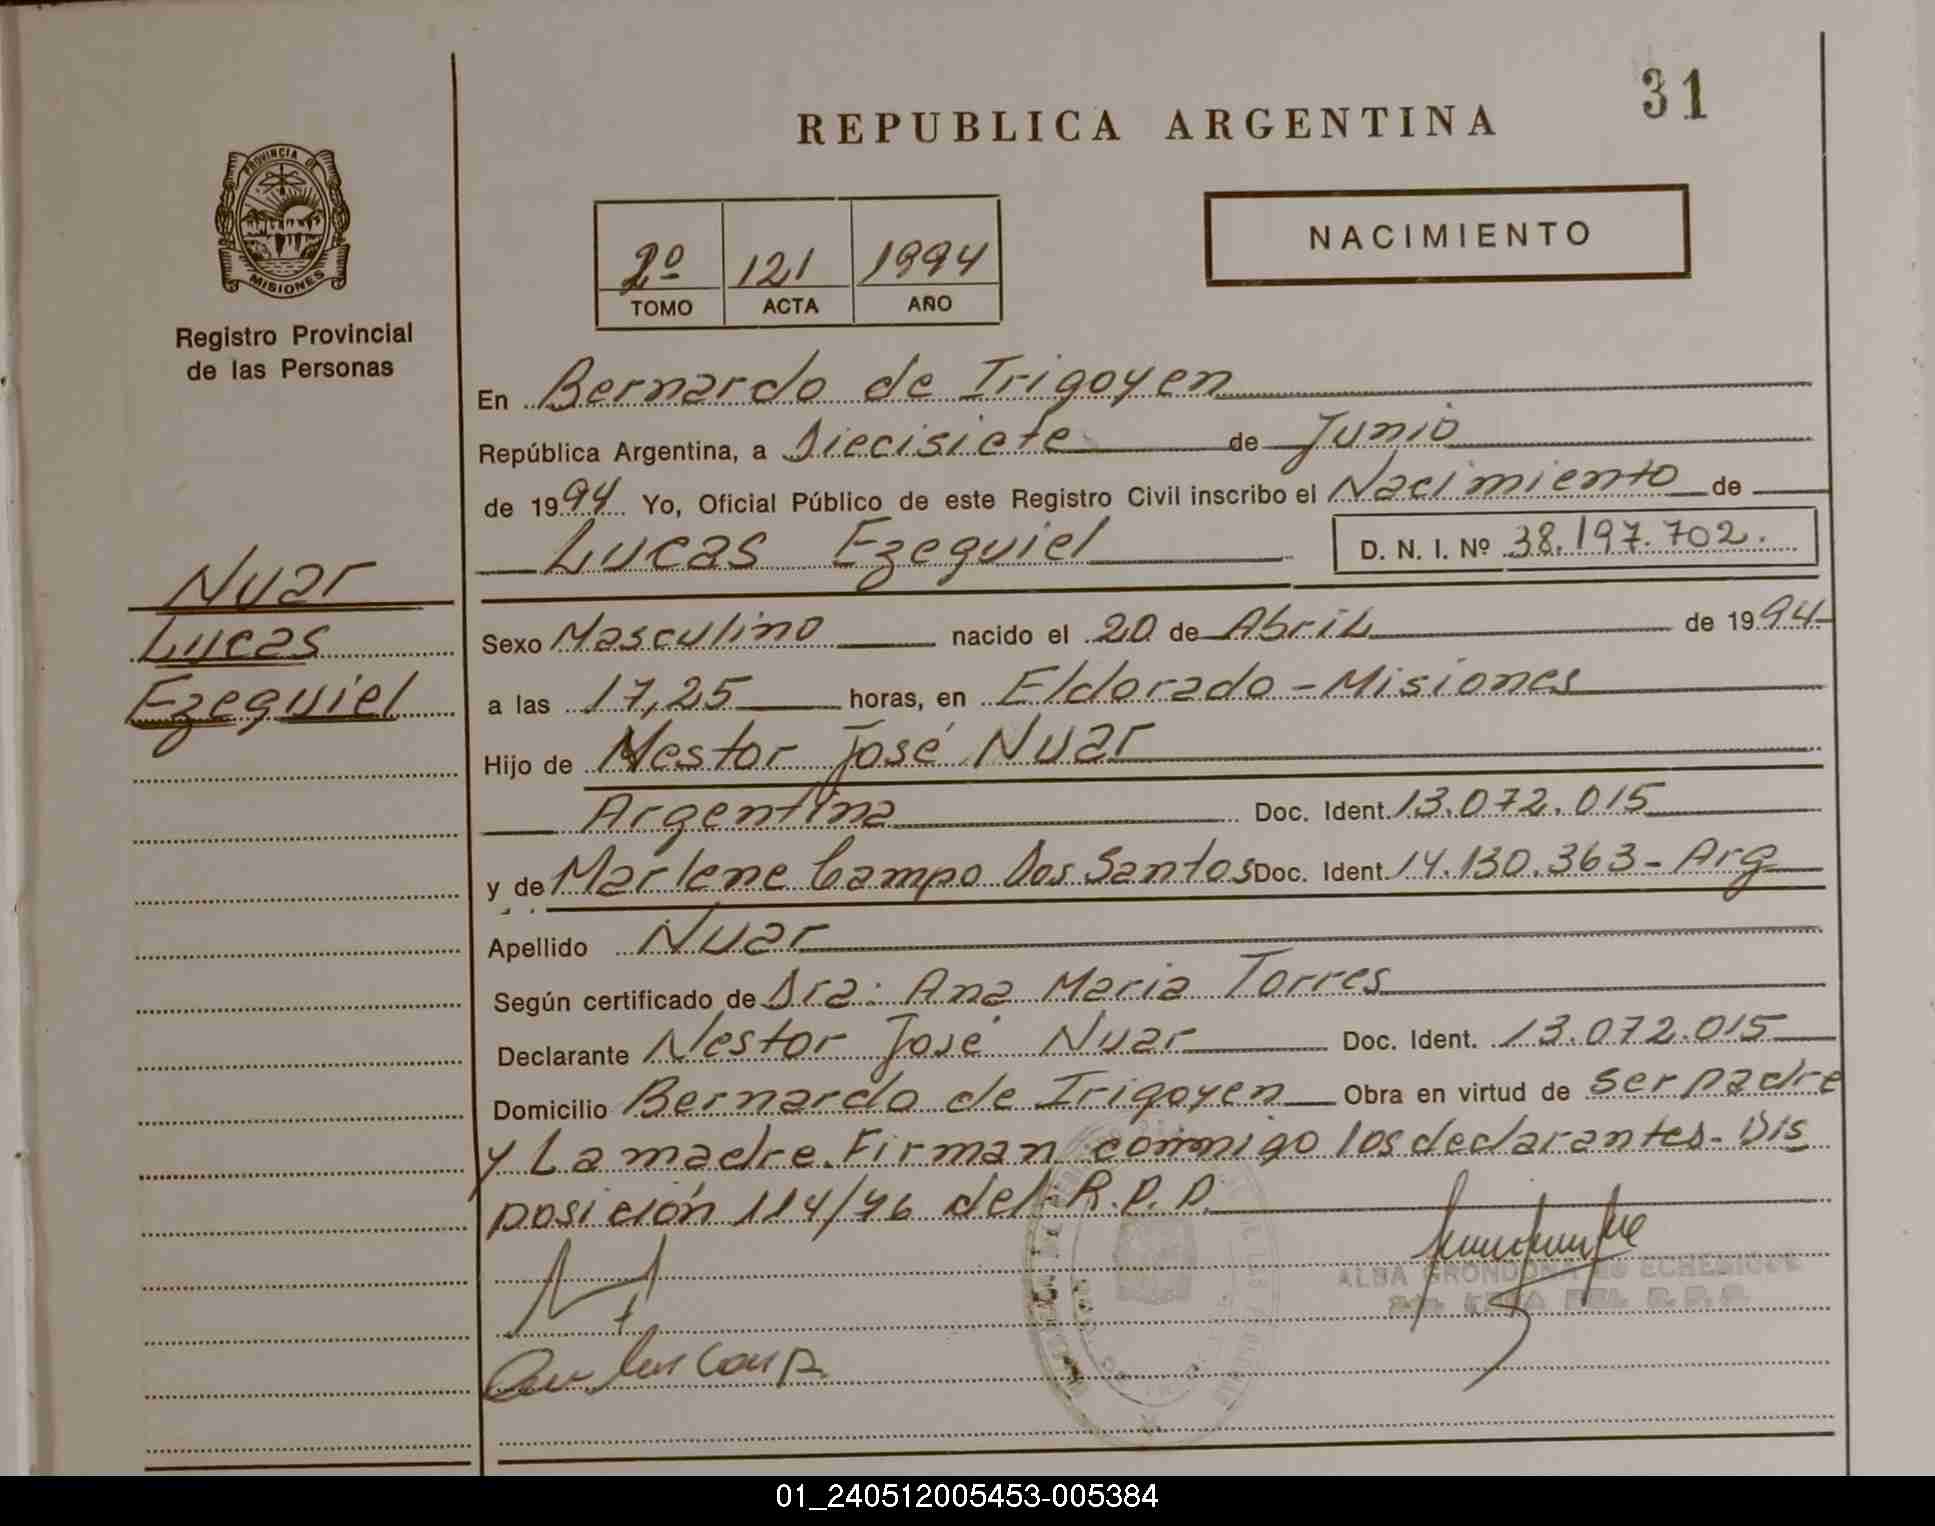 31
REPUBLICA ARGENTINA
PROVINCIA DE
MISIONES
Registro Provincial
de las Personas
2º 121 1994
TOMO ACTA AÑO
NACIMIENTO
En Bernardo de Irigoyen
República Argentina, a Diecisiete de Junio
de 1994 Yo, Oficial Público de este Registro Civil inscribo el Nacimiento de
Lucas Ezequiel D. N. I. Nº 38.197.702.
Nuar
Lucas
Ezequiel
Sexo Masculino nacido el 20 de Abril de 1994
a las 17,25 horas, en Eldorado - Misiones
Hijo de Nestor José Nuar
Argentina Doc. Ident. 13.072.015
y de Marlene Campo Dos Santos Doc. Ident. 14.130.363 - Arg
Apellido Nuar
Según certificado de Dra: Ana Maria Torres
Declarante Nestor José Nuar Doc. Ident. 13.072.015
Domicilio Bernardo de Irigoyen Obra en virtud de ser padre
y La madre. Firman conmigo los declarantes. Dis
posición 114/76 del R.P.P.
ALBA GRONDONA DE
DEL R.P.P.
01_240512005453-005384